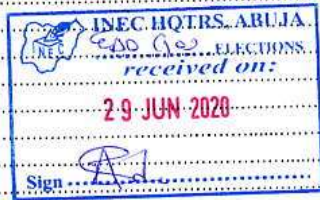 INEC HQTRS. ABUJA
INEC
EDO Gov ELECTIONS
received on:
29 JUN 2020
Sign